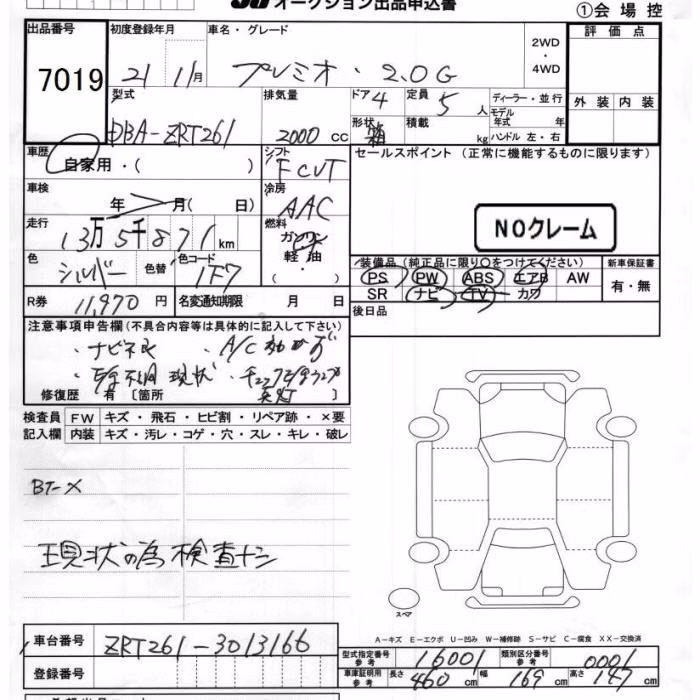 オークション出品申込書
①会場控
出品番号 初度登録年月 車名・グレード 2WD・4WD 評価点
7019 21 11月 プレミオ・2.0G
型式 排気量 ドア 4 定員 5人 ディーラー・並行 外装 内装
DBA-ZRT261 2000cc 形状 箱 積載 kg モデル年式 年 ハンドル 左・右
車歴 自家用・( ) シフト FCVT セールスポイント (正常に機能するものに限ります)
車検 年 月( 日) 冷房 AAC
NOクレーム
走行 13万5千871km 燃料 ガソリン
軽油・( )
色 シルバー 色替 色コード 1F7
装備品(純正品に限り○をつけてください) 新車保証書
PS PW ABS エアB AW 有・無
SR ナビ TV カワ
R券 11,970円 名変通知期限 月 日 後日品
注意事項申告欄(不具合内容等は具体的に記入して下さい)
・ナビ不良 ・A/C
現状
修復歴 有 〔箇所 〕
検査員 FW キズ・飛石・ヒビ割・リペア跡・×要
記入欄 内装 キズ・汚レ・コゲ・穴・スレ・キレ・破レ
BT-X
現状の為検査ナシ
スペア
A-キズ E-エクボ U-凹み W-補修跡 S-サビ C-腐食 XX-交換済
車台番号 ZRT261-3013166
型式指定番号 参考 16001 類別区分番号 参考 0001
登録番号
車庫証明用 参考 長さ 460cm 幅 169cm 高さ 147cm